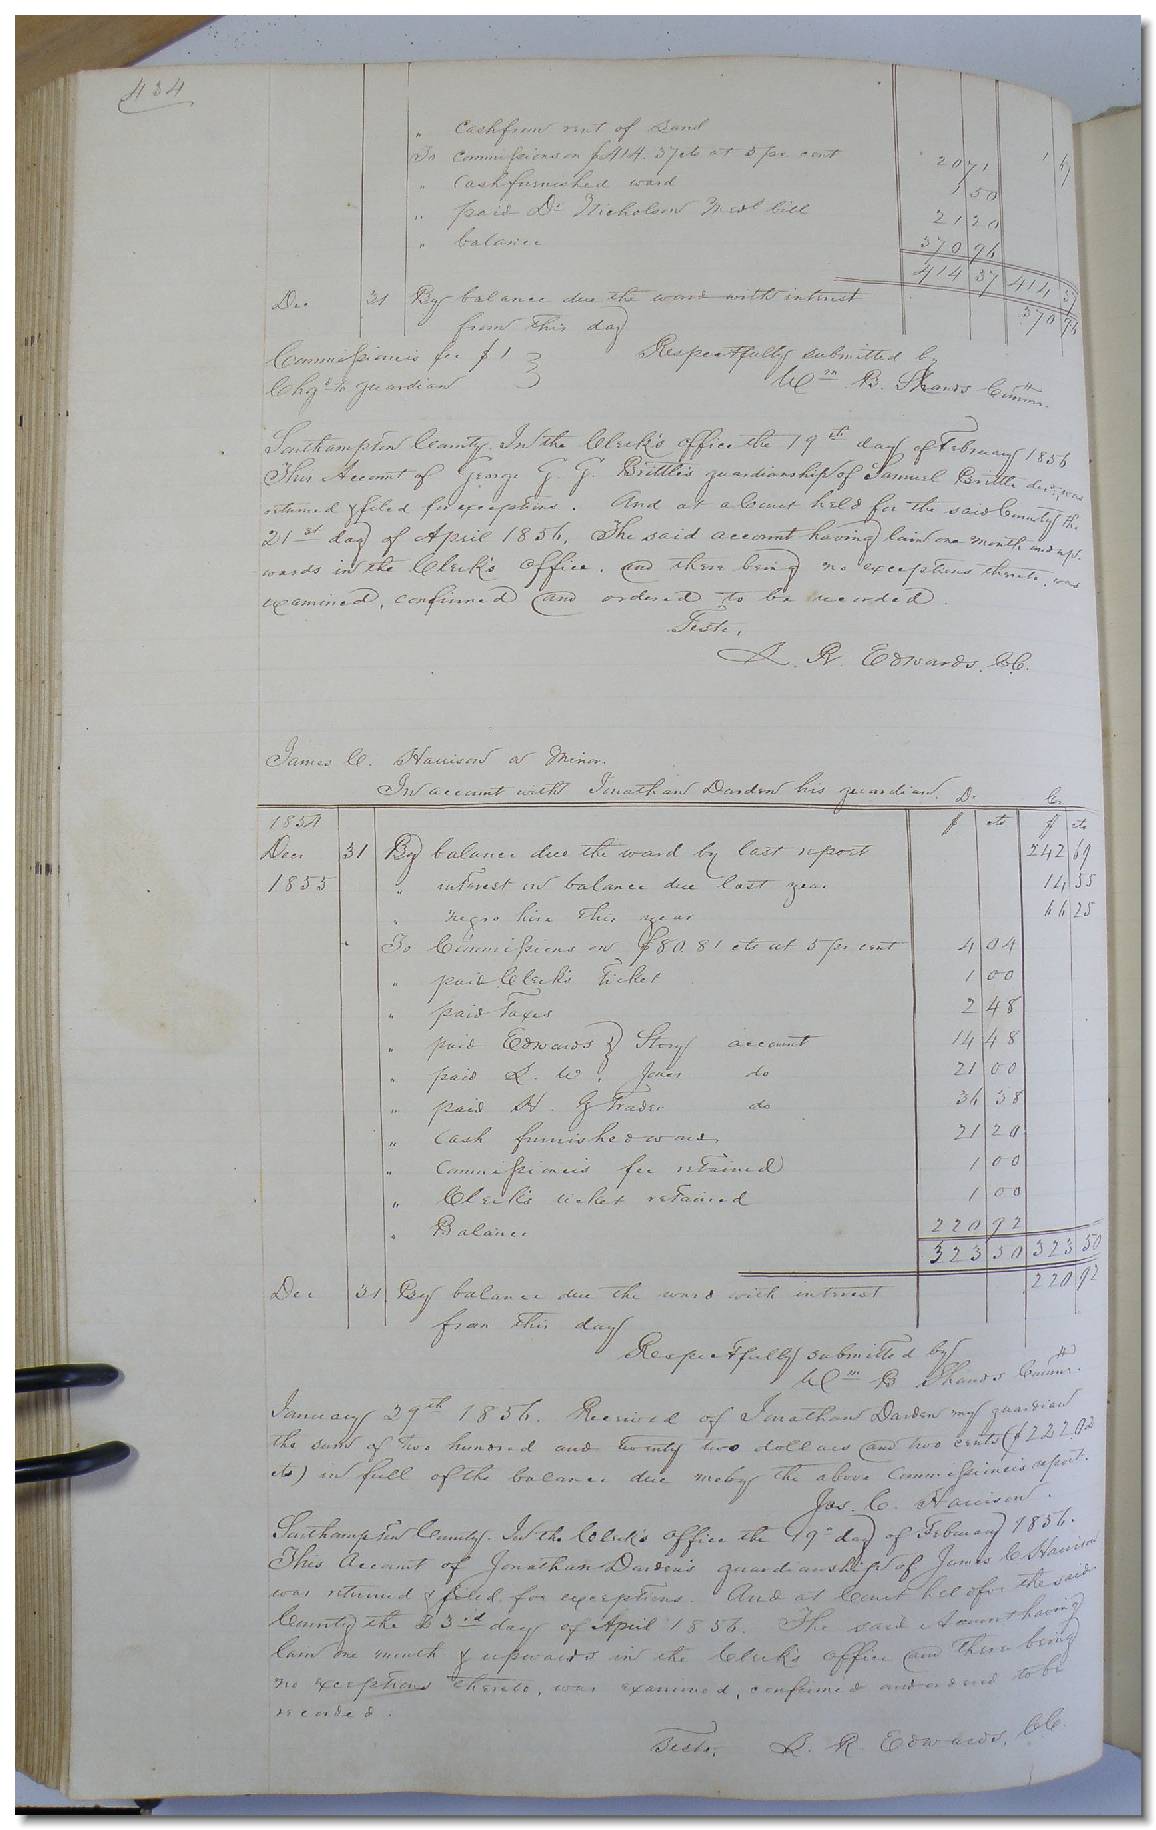 434
" Cash from rent of Land 1 67
To Commissions on $414.37cts at 5 per cent 20 71
" Cash furnished ward 1 50
" paid Dr Nicholson Medl bill 21 20
" balance 370 96
414 37 414 37
Dec 31 By balance due the ward with interest 370 96
from this day
Commissioners fee $1
Chgd to guardian
Respectfully submitted by
Wm B. Shands Commr.
Southampton County. In the Clerk's office the 19th day of February 1856
This Account of George G. G. Brittle's guardianship of Samuel Brittle decd, was
returned & filed for exceptions. And at a Court held for the said County the
21st day of April 1856, The said account having lain one month and up-
wards in the Clerk's office, and there being no exceptions thereto, was
examined, confirmed and ordered to be recorded
Teste,
L. R. Edwards, CC.
James C. Harrison a Minor.
In account with Jonathan Darden his guardian. Dr Cr
1854 $ cts $ cts
Dec 31 By balance due the ward by last report 242 69
1855 " interest on balance due last year 14 55
" negro hire this year 66 25
" To Commissions on $80.81 cts at 5 per cent 4 04
" paid Clerk's Ticket 1 00
" paid Taxes 2 48
" paid Edwards & Story account 14 48
" paid L. W. Jones do 21 00
" paid H. G Trader do 36 38
" Cash furnished ward 21 20
" Commissioners fee retained 1 00
" Clerk's ticket retained 1 00
" Balance 220 92
323 50 323 50
Dec 31 By balance due the ward with interest 220 92
from this day
Respectfully submitted by
Wm B Shands Commr.
January 29th 1856. Received of Jonathan Darden my guardian
the sum of two hundred and twenty two dollars and two cents ($222.02
cts) in full of the balance due me by the above Commissioners report.
Jas. C. Harrison.
Southampton County. In the Clerk's office the 19th day of February 1856.
This Account of Jonathan Darden's guardianship of James C Harrison
was returned & filed for exceptions. And at Court held for the said
County the 23rd day of April 1856. The said Account having
lain one month & upwards in the Clerk's office and there being
no exceptions thereto, was examined, confirmed and ordered to be
recorded.
Teste, L. R. Edwards, CC.